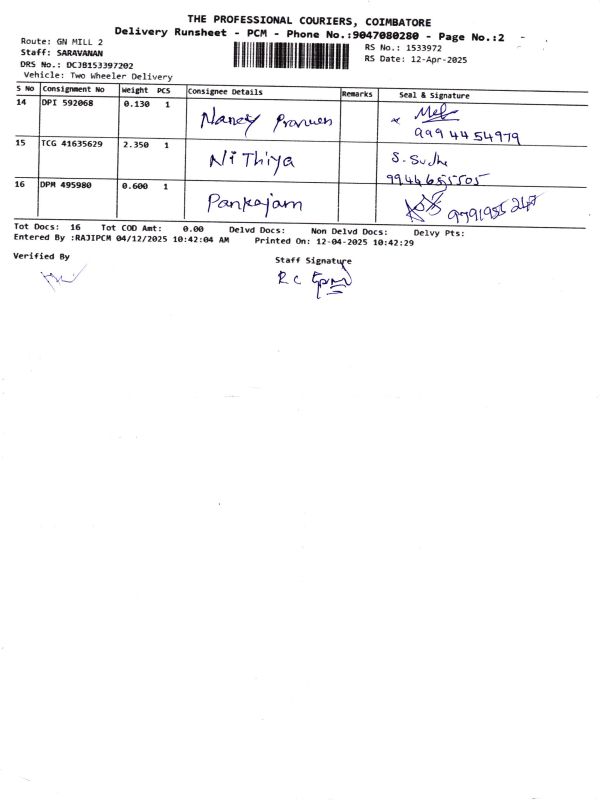 THE PROFESSIONAL COURIERS, COIMBATORE
Delivery Runsheet - PCM - Phone No.:9047080280 - Page No.:2
Route: GN MILL 2
RS No.: 1533972
Staff: SARAVANAN
RS Date: 12-Apr-2025
DRS No.: DCJB153397202
Vehicle: Two Wheeler Delivery
S No Consignment No Weight PCS Consignee Details Remarks Seal & Signature
14 DPI 592068 0.130 1 Nancy Praveen
9994454979
15 TCG 41635629 2.350 1 NiThiya S. Sudhe
9944655505
16 DPM 495980 0.600 1 Pankajam 9791955247
Tot Docs: 16 Tot COD Amt: 0.00 Delvd Docs: Non Delvd Docs: Delvy Pts:
Entered By :RAJIPCM 04/12/2025 10:42:04 AM Printed On: 12-04-2025 10:42:29
Verified By
Staff Signature
R C